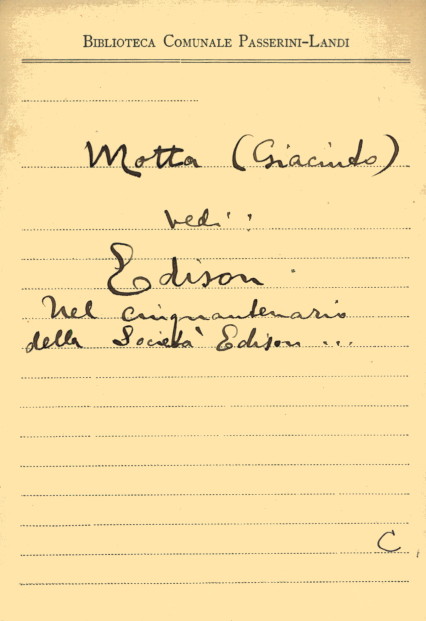 Biblioteca Comunale Passerini-Landi
Motta (Giacinto)
vedi:
Edison.
Nel cinquantenario
della Società Edison ...
C